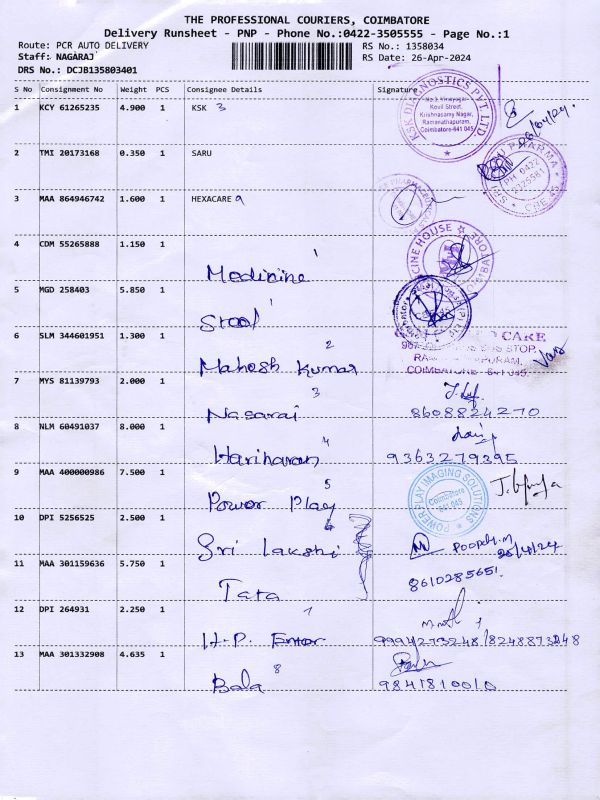 THE PROFESSIONAL COURIERS, COIMBATORE
Delivery Runsheet - PNP - Phone No.:0422-3505555 - Page No.:1
Route: PCR AUTO DELIVERY
RS No.: 1358034
Staff: NAGARAJ
RS Date: 26-Apr-2024
DRS No.: DCJB135803401
S No Consignment No Weight PCS Consignee Details Signature
1 KCY 61265235 4.900 1 KSK 3
KSK DIAGNOSTICS PVT. LTD.
Kovil Street,
Krishnasamy Nagar,
Ramanathapuram,
Coimbatore-641 045
26/04/24.
2 TMI 20173168 0.350 1 SARU
PHARMA
PH: 0422
CBE-45
3 MAA 864946742 1.600 1 HEXACARE 9
4 CDM 55265888 1.150 1 Medicine 1
CINE HOUSE
5 MGD 258403 5.850 1 Stool
6 SLM 344601951 1.300 1 Mahesh Kumar 2
CARE
STOP,
COIMBATORE - 641 045.
7 MYS 81139793 2.000 1 Nagaraj 3
8608824270
8 NLM 60491037 8.000 1 Hariharan 4
9363279395
9 MAA 400000986 7.500 1 Power Play 5
POWER PLAY IMAGING SOLUTIONS
Coimbatore
641 045
10 DPI 5256525 2.500 1 Sri Lakshi
26/4/24
11 MAA 301159636 5.750 1 Tata
8610285651
12 DPI 264931 2.250 1 H.P. Enter 7
9994273248/8248873248
13 MAA 301332908 4.635 1 Bala 8
9841810010